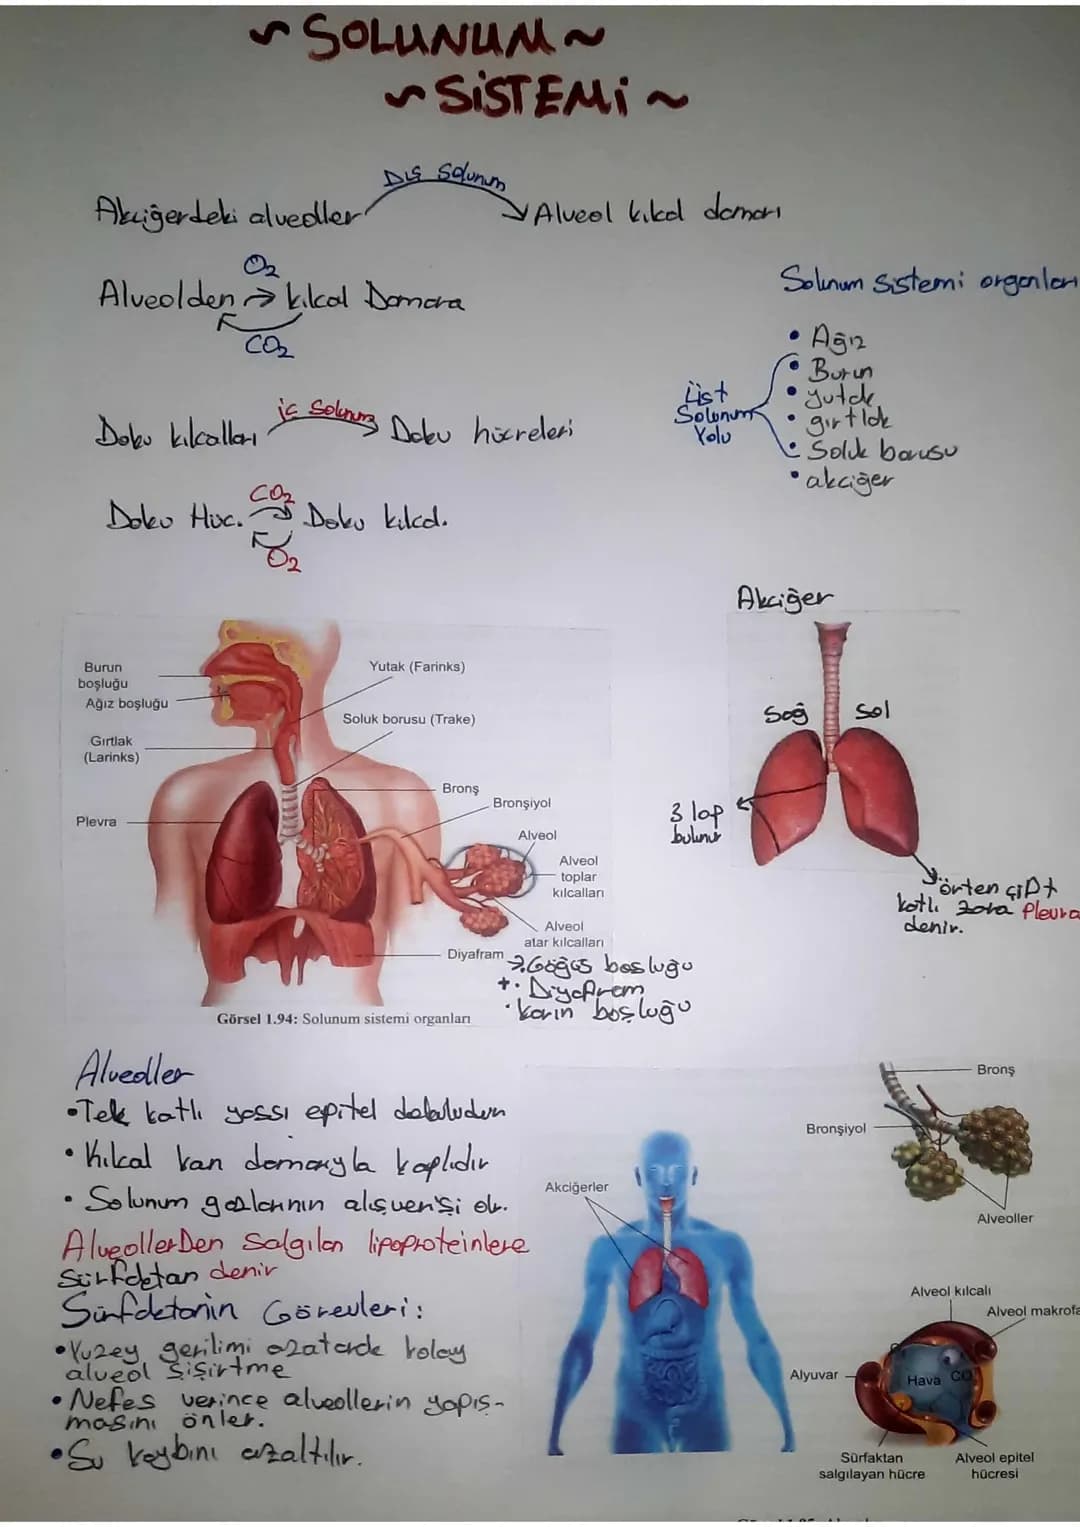 ~ SOLUNUM ~
~ SİSTEMİ ~
Dış Solunum
Akciğerdeki alveoller
Alveol kılcal damarı
O2
Alveolden → kılcal Damara
CO2
Solunum sistemi organları
• Ağız
• Burun
• yutak
• gırtlak
• Soluk borusu
• akciğer
Üst
Solunum
Yolu
iç Solunum
Doku kılcalları
Doku hücreleri
CO2
Doku Hüc.
Doku kılcal.
O2
Akciğer
Sağ
Sol
3 lop
bulunur
örten çift
katlı zara Plevra
denir.
Burun
boşluğu
Ağız boşluğu
Gırtlak
(Larinks)
Plevra
Yutak (Farinks)
Soluk borusu (Trake)
Bronş
Bronşiyol
Alveol
Alveol
toplar
kılcalları
Alveol
atar kılcalları
Diyafram
→ Göğüs boşluğu
+ • Diyafram
• karın boşluğu
Görsel 1.94: Solunum sistemi organları
Alveoller
• Tek katlı yassı epitel dokuludur
• Kılcal kan damarıyla kaplıdır
• Solunum gazlarının alışverişi olr.
AlveollerDen Salgılan lipoproteinlere
Sürfaktan denir
Sürfaktanın Görevleri:
• Yüzey gerilimi azaltarak kolay
alveol şişirtme
• Nefes verince alveollerin yapış-
masını önler.
• Su kaybını azaltılır.
Akciğerler
Bronş
Bronşiyol
Alveoller
Alveol kılcalı
Alveol makrofa
Alyuvar
Hava
CO
Sürfaktan
salgılayan hücre
Alveol epitel
hücresi